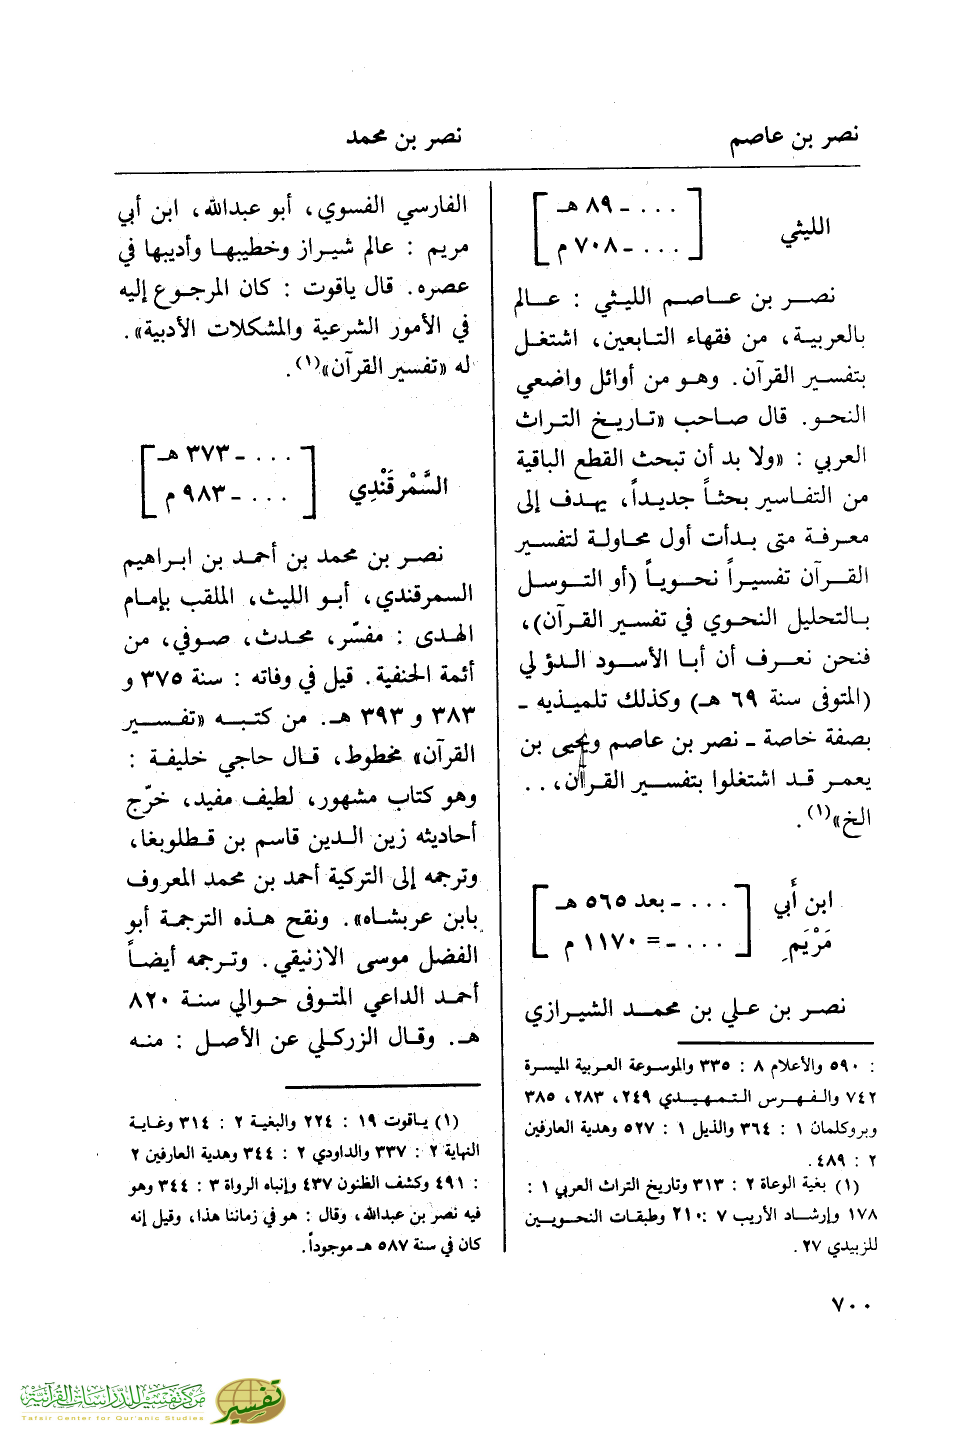 نصر بن عاصم
نصر بن محمد
الليثي
[ . . . - ٨٩ هـ
. . . - ٧٠٨ م ]
نصر بن عاصم الليثي : عالم
بالعربية، من فقهاء التابعين، اشتغل
بتفسير القرآن. وهو من أوائل واضعي
النحو. قال صاحب «تاريخ التراث
العربي : «ولا بد أن تبحث القطع الباقية
من التفاسير بحثاً جديداً، يهدف إلى
معرفة متى بدأت أول محاولة لتفسير
القرآن تفسيراً نحوياً (أو التوسل
بالتحليل النحوي في تفسير القرآن)،
فنحن نعرف أن أبا الأسود الدؤلي
(المتوفى سنة ٦٩ هـ) وكذلك تلميذيه ـ
بصفة خاصة ـ نصر بن عاصم ويحيى بن
يعمر قد اشتغلوا بتفسير القرآن، . .
الخ»(١).
ابن أبي
مَرْيَم
[ . . . - بعد ٥٦٥ هـ
. . . - = ١١٧٠ م ]
نصر بن علي بن محمد الشيرازي
: ٥٩٠ والأعلام ٨ : ٣٣٥ والموسوعة العربية الميسرة
٧٤٢ والفهرس التمهيدي ٢٤٩، ٢٨٣، ٣٨٥
وبروكلمان ١ : ٣٦٤ والذيل ١ : ٥٢٧ وهدية العارفين
٢ : ٤٨٩.
(١) بغية الوعاة ٢ : ٣١٣ وتاريخ التراث العربي ١ :
١٧٨ وإرشاد الأريب ٧ : ٢١٠ وطبقات النحويين
للزبيدي ٢٧ .
الفارسي الفسوي، أبو عبدالله، ابن أبي
مريم : عالم شيراز وخطيبها وأديبها في
عصره. قال ياقوت : كان المرجوع إليه
في الأمور الشرعية والمشكلات الأدبية».
له «تفسير القرآن»(١).
السَّمْرقَنْدِي
[ . . . - ٣٧٣ هـ
. . . - ٩٨٣ م ]
نصر بن محمد بن أحمد بن ابراهيم
السمرقندي، أبو الليث، الملقب بإمام
الهدى : مفسّر، محدث، صوفي، من
أئمة الحنفية. قيل في وفاته : سنة ٣٧٥ و
٣٨٣ و ٣٩٣ هـ. من كتبه «تفسير
القرآن» مخطوط، قال حاجي خليفة :
وهو كتاب مشهور، لطيف مفيد، خرّج
أحاديثه زين الدين قاسم بن قطلوبغا،
وترجمه إلى التركية أحمد بن محمد المعروف
بابن عربشاه». ونقح هذه الترجمة أبو
الفضل موسى الازنيقي. وترجمه أيضاً
أحمد الداعي المتوفى حوالي سنة ٨٢٠
هـ. وقال الزركلي عن الأصل : منه
(١) ياقوت ١٩ : ٢٢٤ والبغية ٢ : ٣١٤ وغاية
النهاية ٢ : ٣٣٧ والداودي ٢ : ٣٤٤ وهدية العارفين ٢
: ٤٩١ وكشف الظنون ٤٣٧ وإنباه الرواة ٣ : ٣٤٤ وهو
فيه نصر بن عبدالله، وقال : هو في زماننا هذا، وقيل إنه
كان في سنة ٥٨٧ هـ موجوداً.
٧٠٠
مركز تفسير للدراسات القرآنية
Tafsir Center for Qur'anic Studies
تفسير